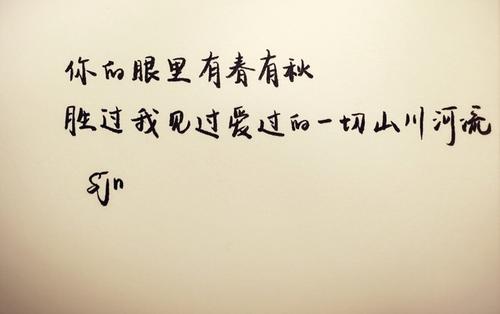 你的眼里有春有秋
胜过我见过爱过的一切山川河流
sjn